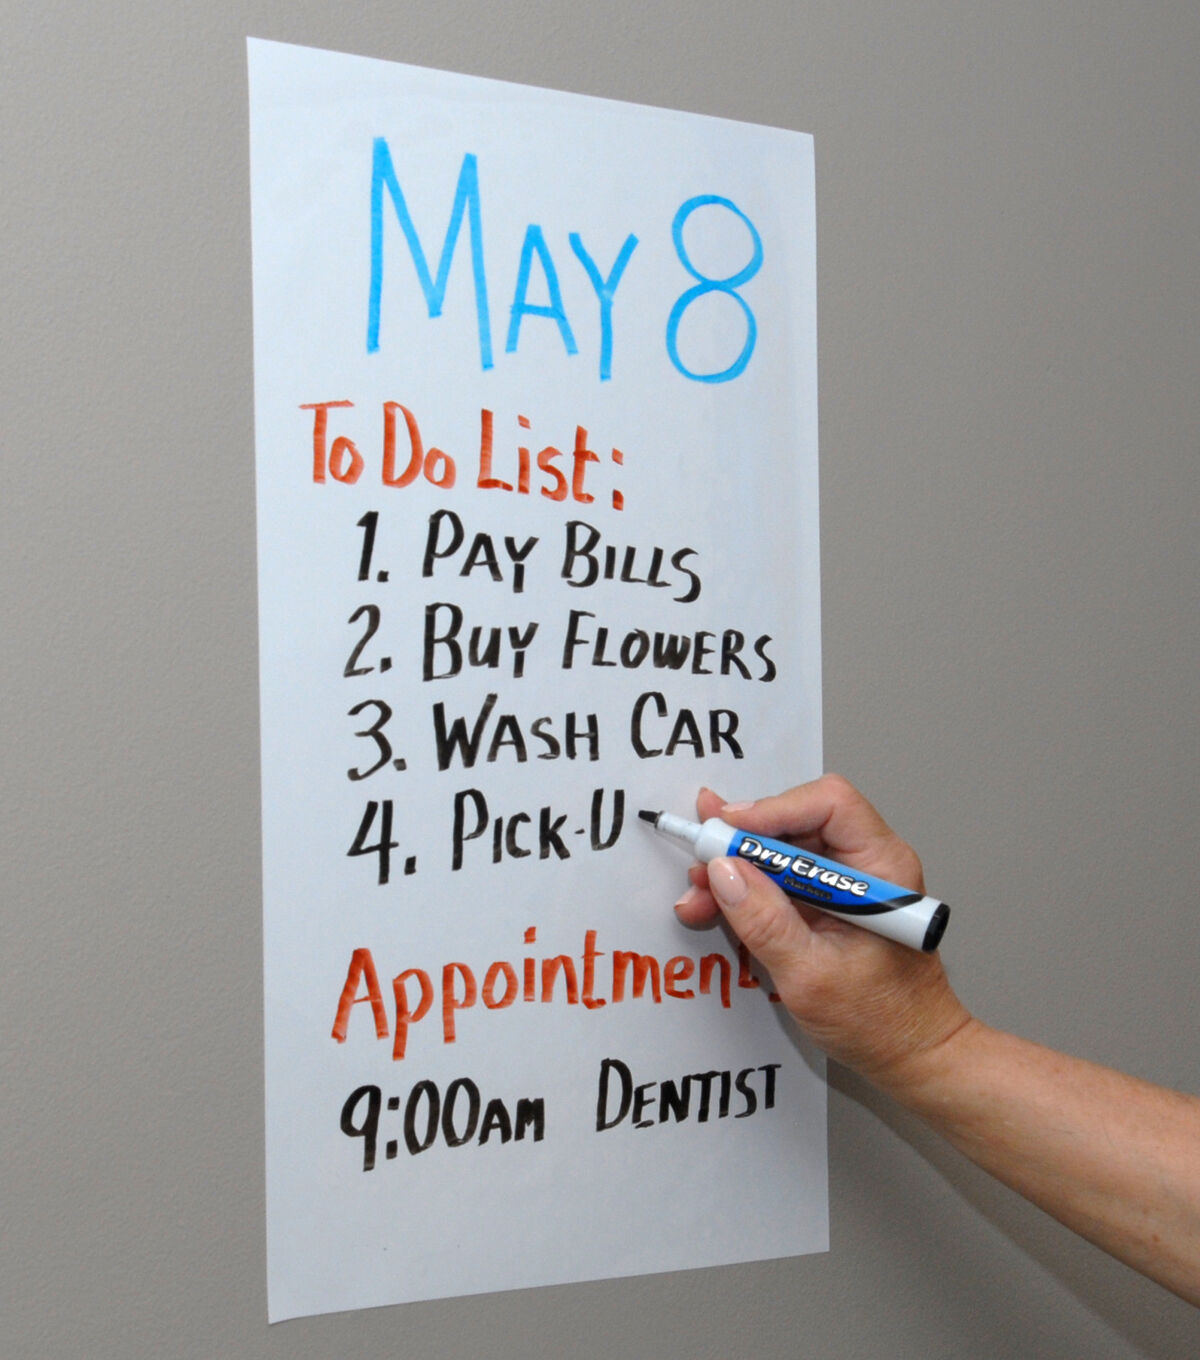 MAY 8
To Do List:
1. PAY BILLS
2. BUY FLOWERS
3. WASH CAR
4. PICK-U
Dry Erase
Markers
Appointments
9:00AM DENTIST